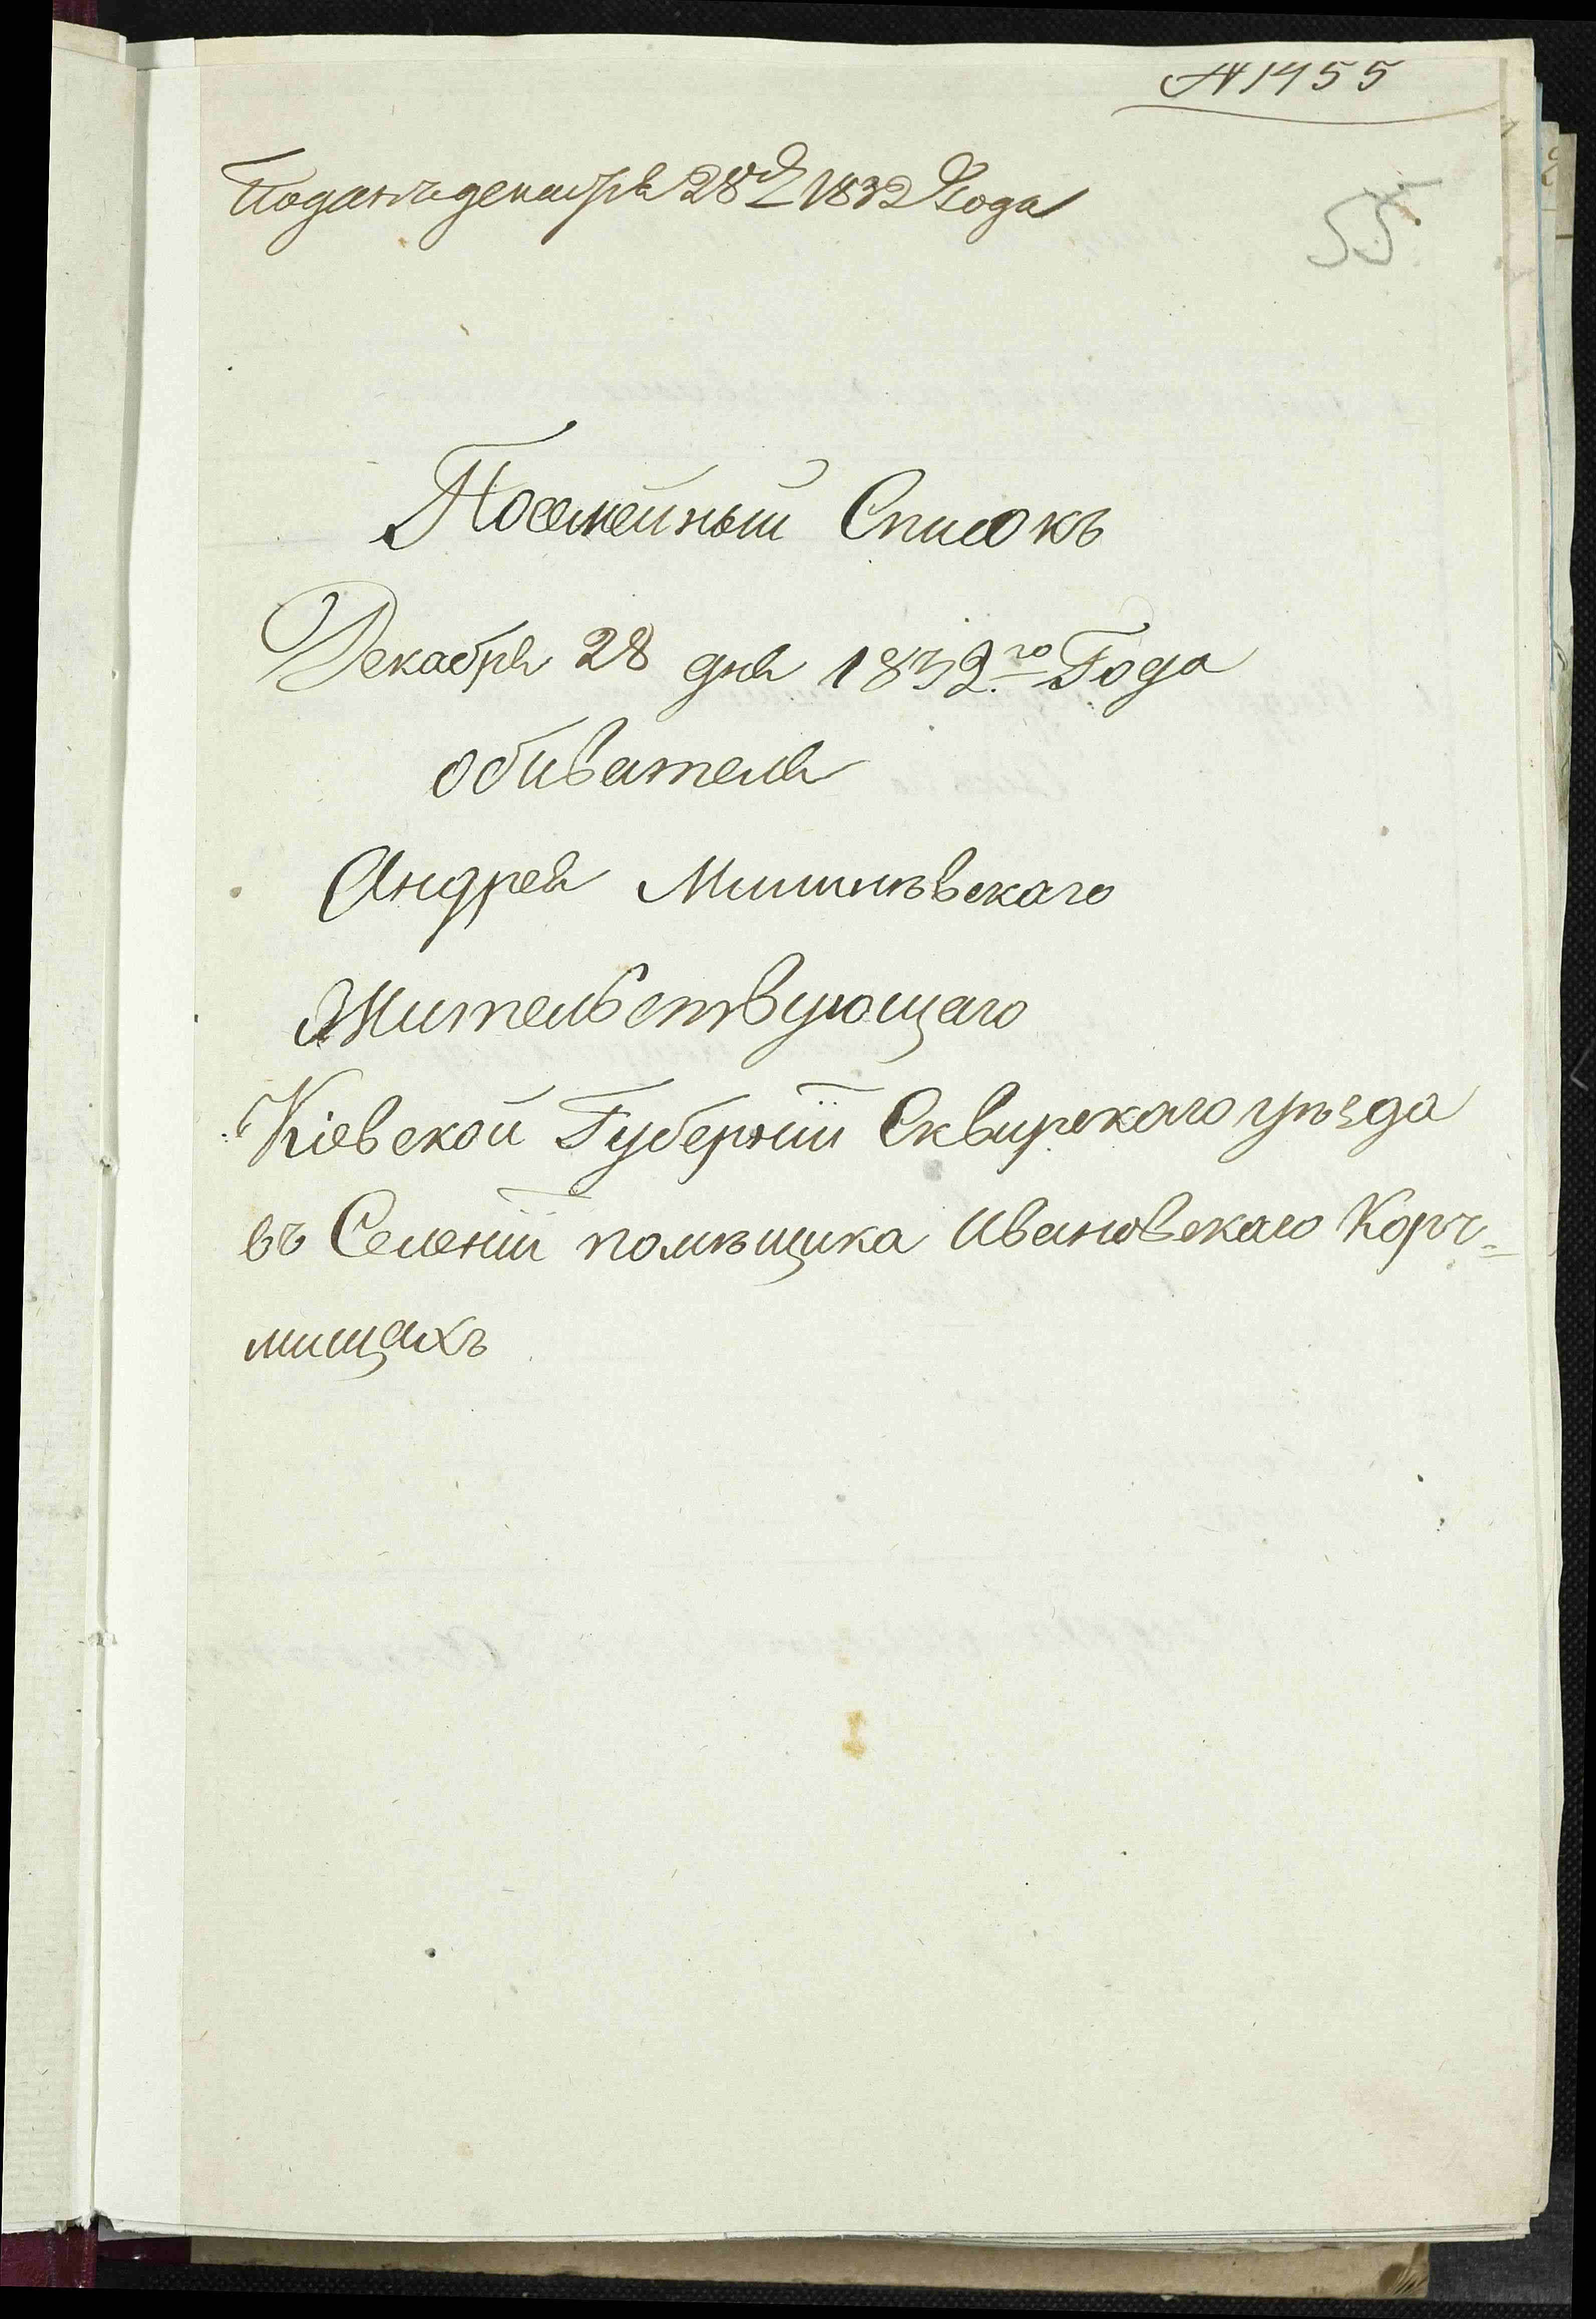 № 1455
Поданъ декабря 28 д 1832 Года
55
Посемейный Списокъ
Декабря 28 дня 1832го Года
обивателя
Андрея
Жительствующаго
Кіевской Губерніи Сквирскаго уѣзда
въ Селеніи помѣщика Ивановскаго Корч=
мищахъ